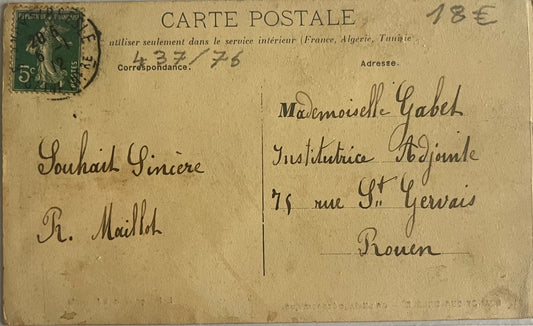 CARTE POSTALE
18€
utiliser seulement dans le service intérieur (France, Algérie, Tunisie
Correspondance.
437/76
Adresse.
5c
POSTES
Souhait Sincère
R. Maillot
Mademoiselle Gabet
Institutrice Adjointe
75 rue St Gervais
Rouen